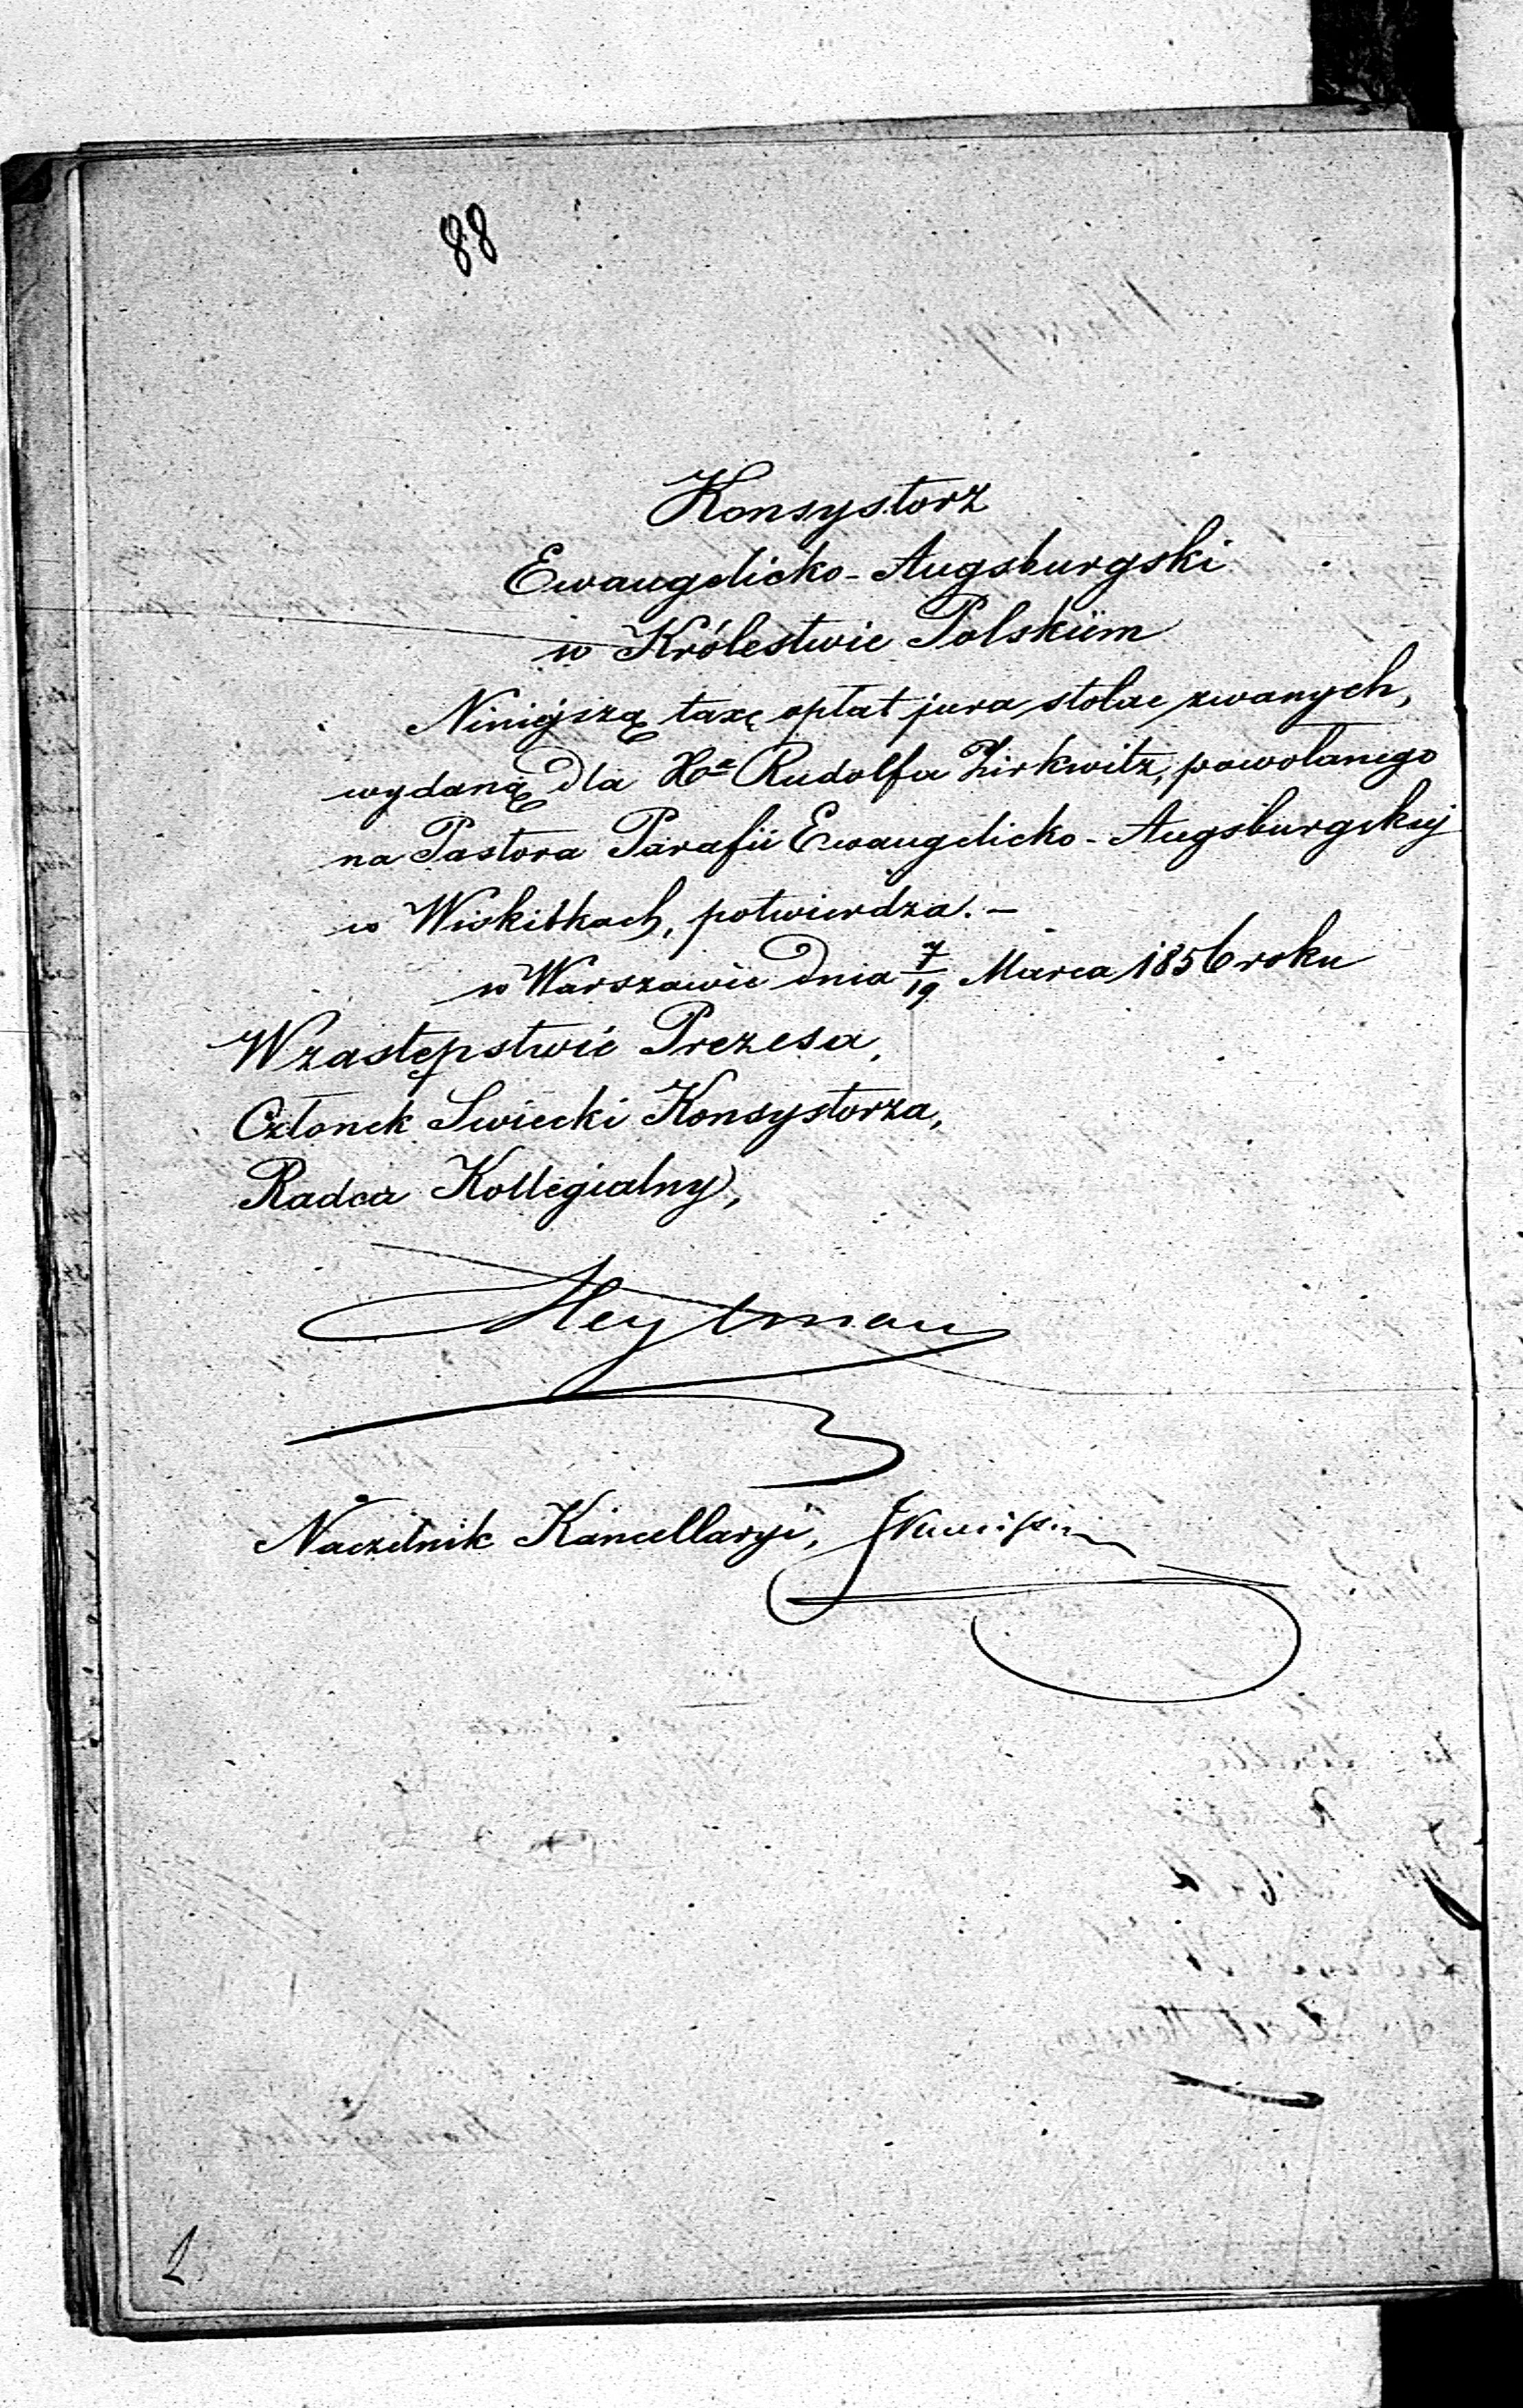 88
Konsystorz
Ewangelicko-Augsburgski
w Królestwie Polskiem
Niniejszą taxę opłat jura stolae zwanych,
wydaną dla Xa Rudolfa Zirkwitz, powołanego
na Pastora Parafii Ewangelicko-Augsburgskiej
w Wiskitkach, potwierdza. –
w Warszawie dnia 7/19 Marca 1856 roku
W zastępstwie Prezesa,
Członek Swiecki Konsystorza,
Radca Kollegialny,
Heylman
Naczelnik Kancellaryi,